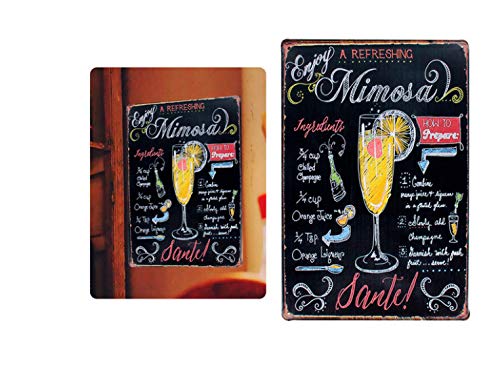 Enjoy
A REFRESHING
Mimosa
Ingredients
HOW TO
Prepare:
¾ cup
Chilled
Champagne
1. Combine
juice & liqueur
in a fluted glass
¾ cup
Orange Juice
2. Slowly add
champagne
¾ Tsp
Orange Liqueur
3. Garnish with fresh
fruit ...serve!
Sante!
Enjoy
A REFRESHING
Mimosa
Ingredients
HOW TO
Prepare:
¾ cup
Chilled
Champagne
1. Combine
juice & liqueur
in a fluted glass
¾ cup
Orange Juice
2. Slowly add
champagne
¾ Tsp
Orange Liqueur
3. Garnish with fresh
fruit ...serve!
Sante!